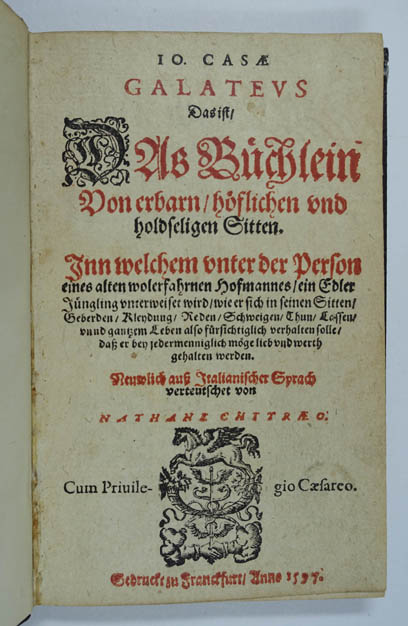 IO. CASÆ
GALATEVS
Das ist/
DAs Büchlein
Von erbarn/ höflichen vnd
holdseligen Sitten.
Inn welchem vnter der Person
eines alten wolerfahrnen Hofmannes/ ein Edler
Jüngling vnterweiset wird/ wie er sich in seinen Sitten/
Geberden/ Kleydung/ Reden/ Schweigen/ Thun/ Lassen/
vnnd gantzem Leben also fürsichtiglich verhalten solle/
daß er bey jedermenniglich möge lieb vnd werth
gehalten werden.
Neuwlich auß Italianischer Sprach
verteutschet von
NATHANE CHITRÆO.
Cum Priuile- gio Cæsareo.
Gedruckt zu Franckfurt/ Anno 1597.